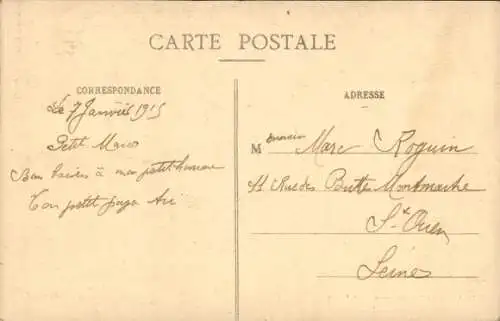 CARTE POSTALE
CORRESPONDANCE
Le 7 Janvier 1915
Petit Marc
Bon baiser à mon petit homme
Ton petit papa
ADRESSE
M Marc Roguin
Rue des Buttes Montmartre
St Ouen
Seine